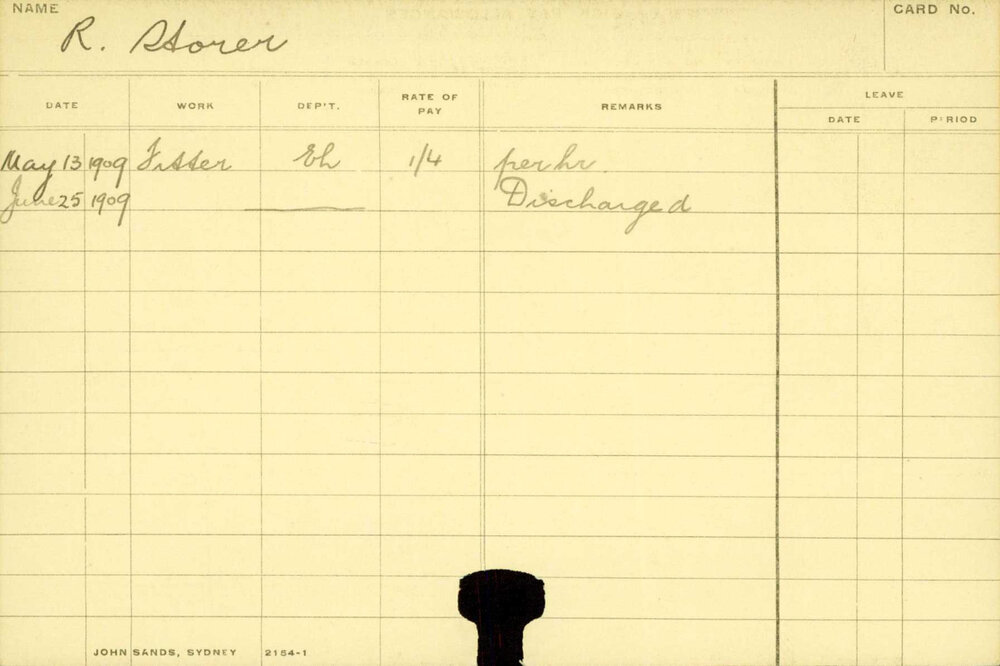 NAME
R. Storer
CARD No.
DATE WORK DEP'T. RATE OF PAY REMARKS LEAVE
DATE PERIOD
May 13 1909 Fitter Eh 1/4 per hr.
June 25 1909 Discharged
JOHN SANDS, SYDNEY 2154-1